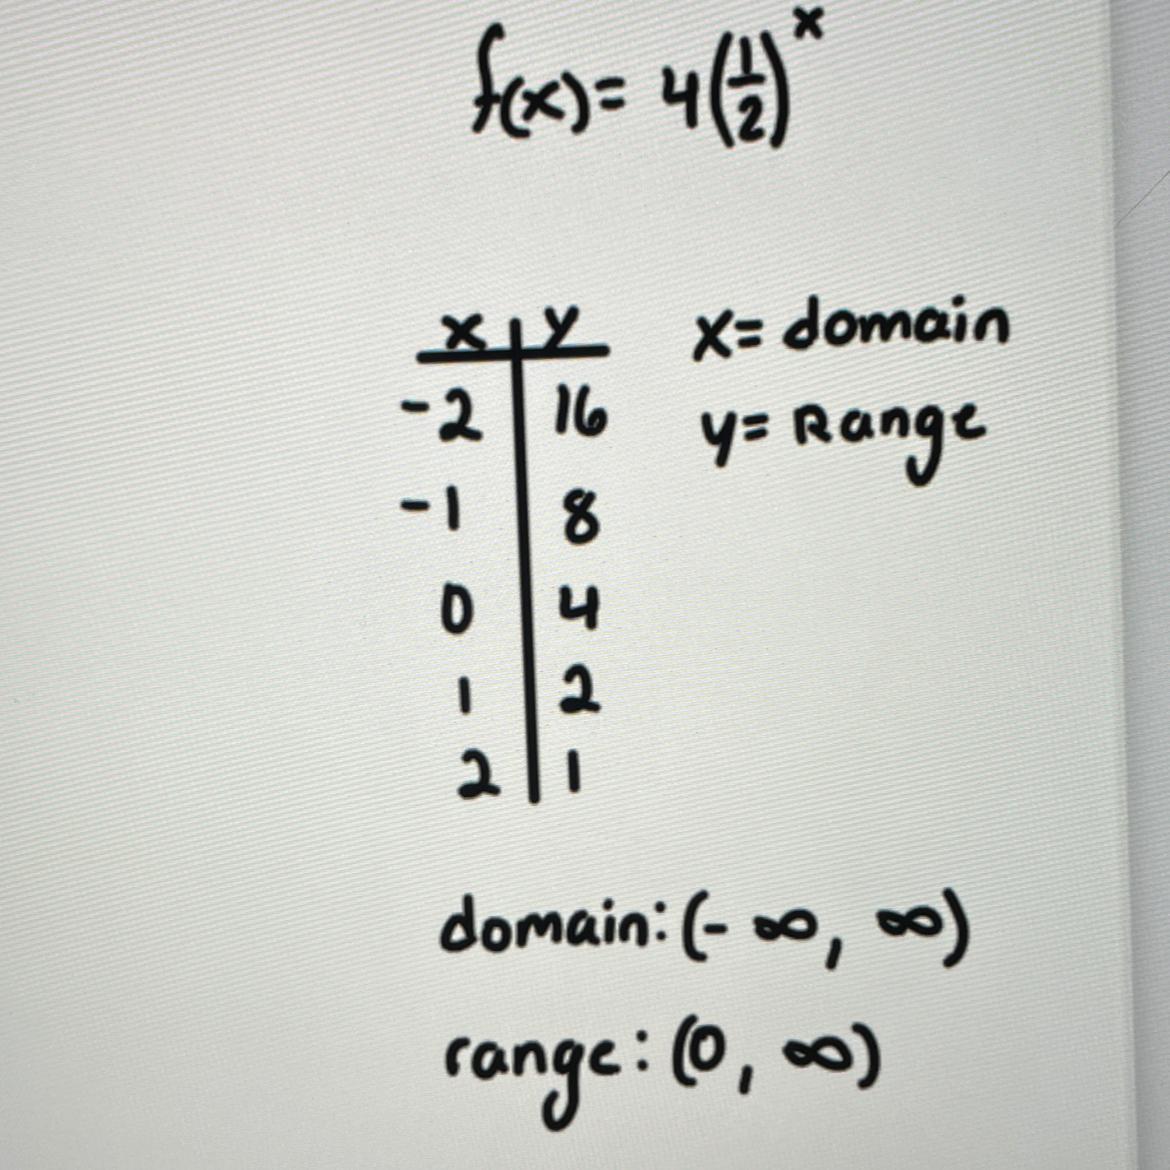 f(x)= 4(1/2)^x
x y
-2 16
-1 8
0 4
1 2
2 1
x= domain
y= Range
domain: (- ∞, ∞)
range: (0, ∞)